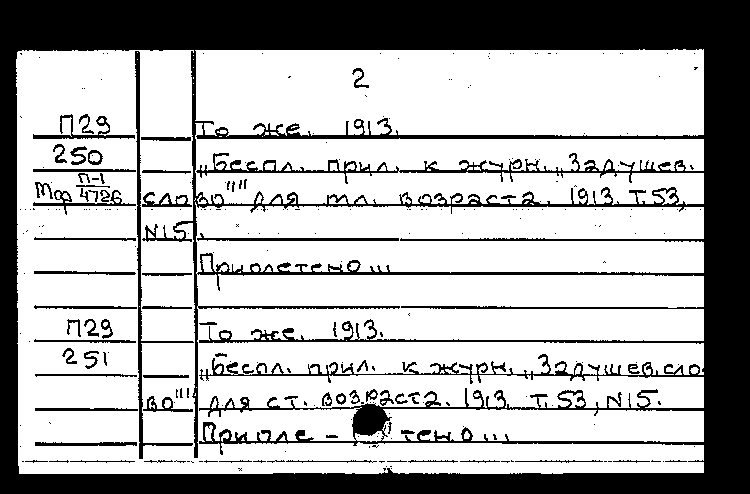 2
П29 То же. 1913.
250 „Беспл. прил. к журн. „Задушев.
Мф П-1/4726 слово"" для мл. возраста. 1913. Т.53,
N15.
Приплетено...
П29 То же. 1913.
251 „Беспл. прил. к журн. „Задушев. сло-
во"" для ст. возраста. 1913 Т.53, N15.
Припле- тено...